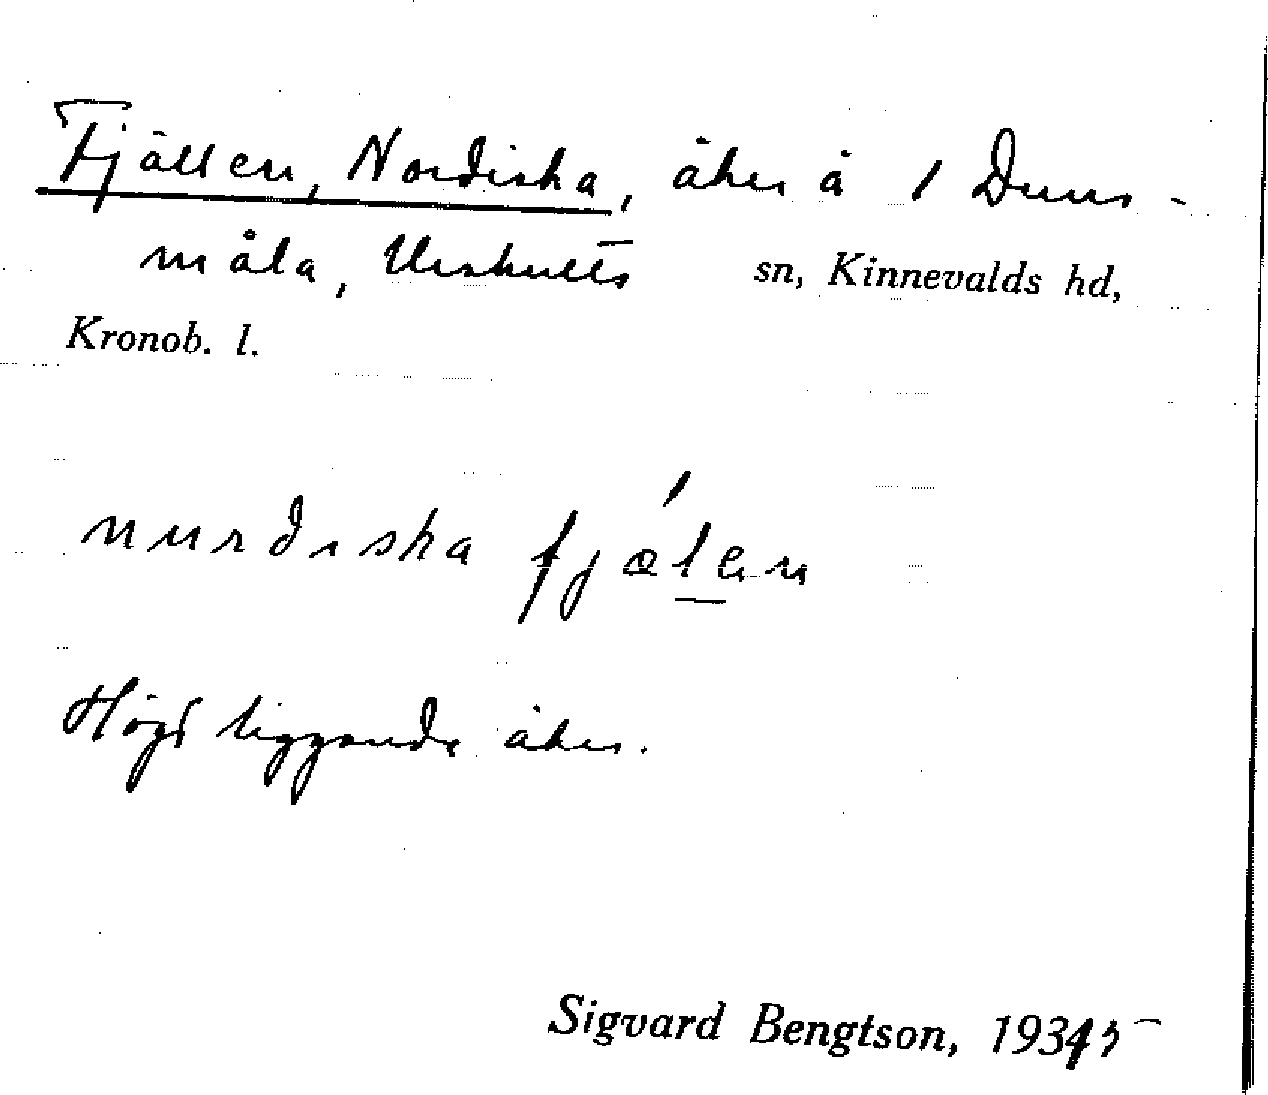 Fjällen, Nordiska, åker å 1 Duns-
måla, Urshults sn, Kinnevalds hd,
Kronob. l.
nurdiska fjælen
Högt liggande åker.
Sigvard Bengtson, 1935